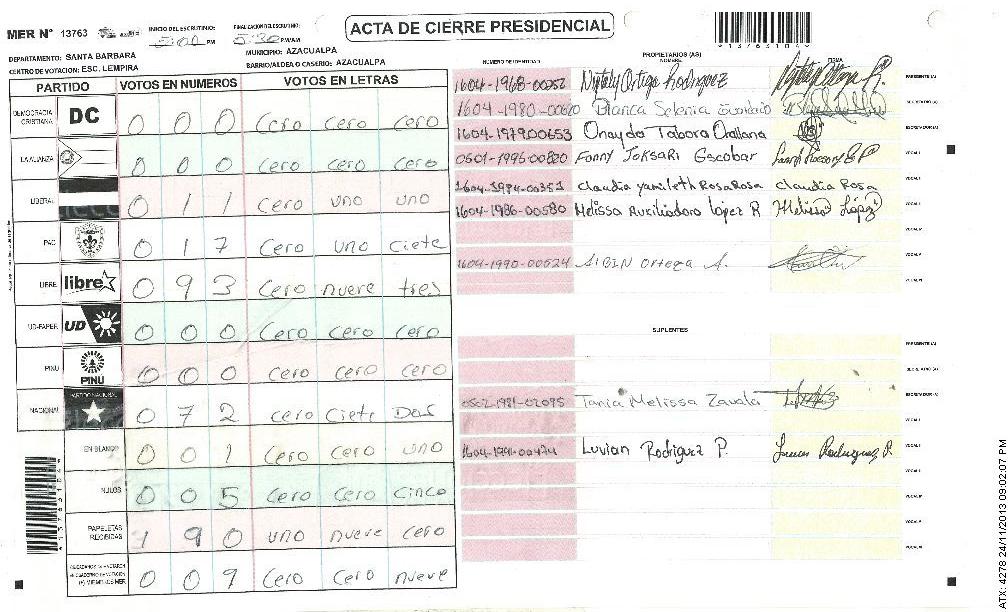 MER N° 13763
INICIO DEL ESCRUTINIO: 5:00 PM
FINALIZACION DEL ESCRUTINIO: 5:30 PM/AM
ACTA DE CIERRE PRESIDENCIAL
DEPARTAMENTO: SANTA BARBARA
MUNICIPIO: AZACUALPA
CENTRO DE VOTACION: ESC. LEMPIRA
BARRIO/ALDEA O CASERIO: AZACUALPA
PARTIDO VOTOS EN NUMEROS VOTOS EN LETRAS
DEMOCRACIA CRISTIANA DC 0 0 0 Cero cero cero
LA ALIANZA 0 0 0 cero cero cero
LIBERAL 0 1 1 Cero uno uno
PAC 0 1 7 Cero uno ciete
LIBRE libre 0 9 3 Cero nueve tres
UD-FAPER UD 0 0 0 Cero Cero Cero
PINU PINU 0 0 0 Cero cero cero
NACIONAL PARTIDO NACIONAL 0 7 2 cero Ciete Dos
EN BLANCO 0 0 1 Cero cero uno
NULOS 0 0 5 Cero Cero Cinco
PAPELETAS RECIBIDAS 1 9 0 uno nueve cero
0 0 9 Cero Cero nueve
13763104
PROPIETARIOS (AS)
NUMERO DE IDENTIDAD NOMBRE FIRMA
Ortega Rodriguez PRESIDENTE (A)
1604-1980-00620 Blanca Selenia SECRETARIO (A)
1604-1979-00653 Onayda Tabora Orellana ESCRUTADOR (A)
0501-1996-00820 Fanny Joksari Escobar VOCAL I
1604-1984-00351 Claudia yamileth Rosa Rosa Claudia Rosa VOCAL II
1604-1986-00580 Melissa Auxiliadora lopez R Melissa López
1604-1990-00624 AlBIN Ortega A.
SUPLENTES
PRESIDENTE (A)
SECRETARIO (A)
0502-1981-02095 Tania Melissa Zavala ESCRUTADOR (A)
1604-1991-00474 Luvian Rodriguez P. VOCAL I
ATX: 4278 24/11/2013 09:02:07 PM